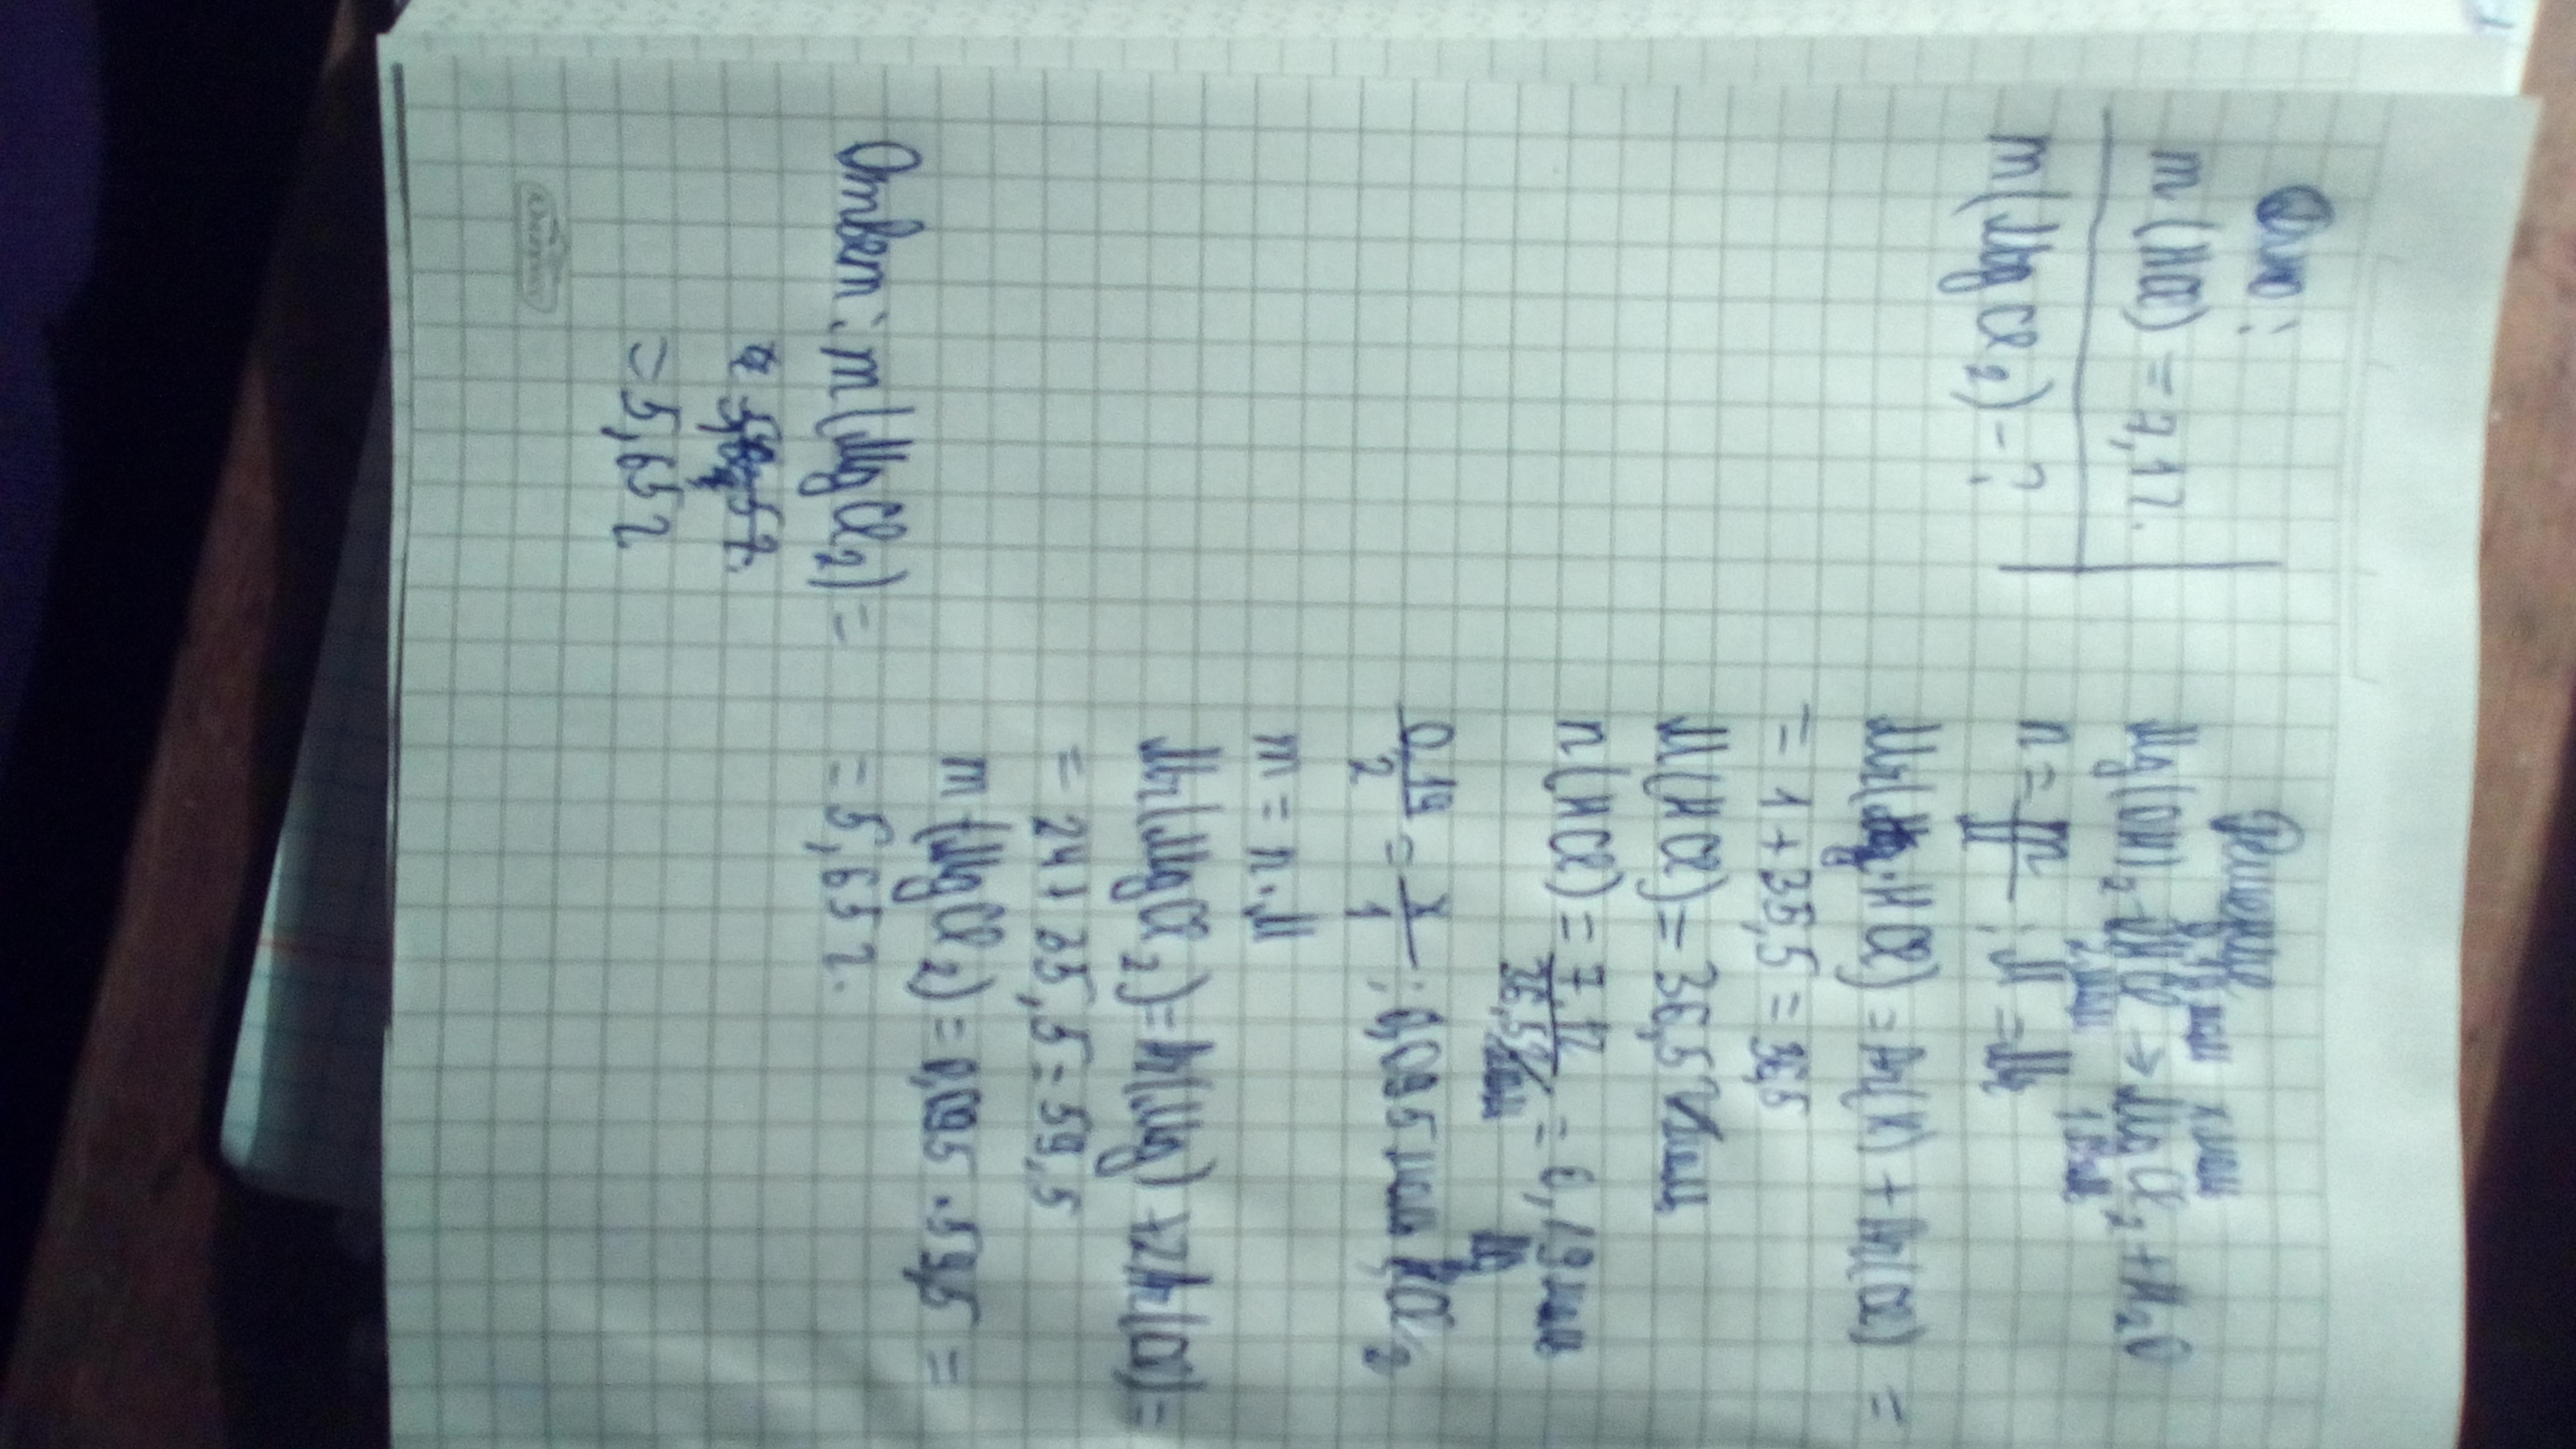 Дано:
m(HCl) = 7,1 г.
m(MgCl2) - ?
Решение
0,19 моль x моль
Mg(OH)2 + 2HCl → MgCl2 + H2O
2 моль 1 моль
n = m/M ; M = Mr
Mr(HCl) = Ar(H) + Ar(Cl) =
= 1 + 35,5 = 36,5
M(HCl) = 36,5 г/моль
n(HCl) = 7,1г/36,5г/моль = 0,19 моль
0,19/2 = x/1 ; 0,095 моль MgCl2
m = n·M
Mr(MgCl2) = Ar(Mg) + 2Ar(Cl) =
= 24 + 35,5 = 59,5
m(MgCl2) = 0,095 · 59,5 =
= 5,65 г.
Ответ: m(MgCl2) =
= 5,65 г